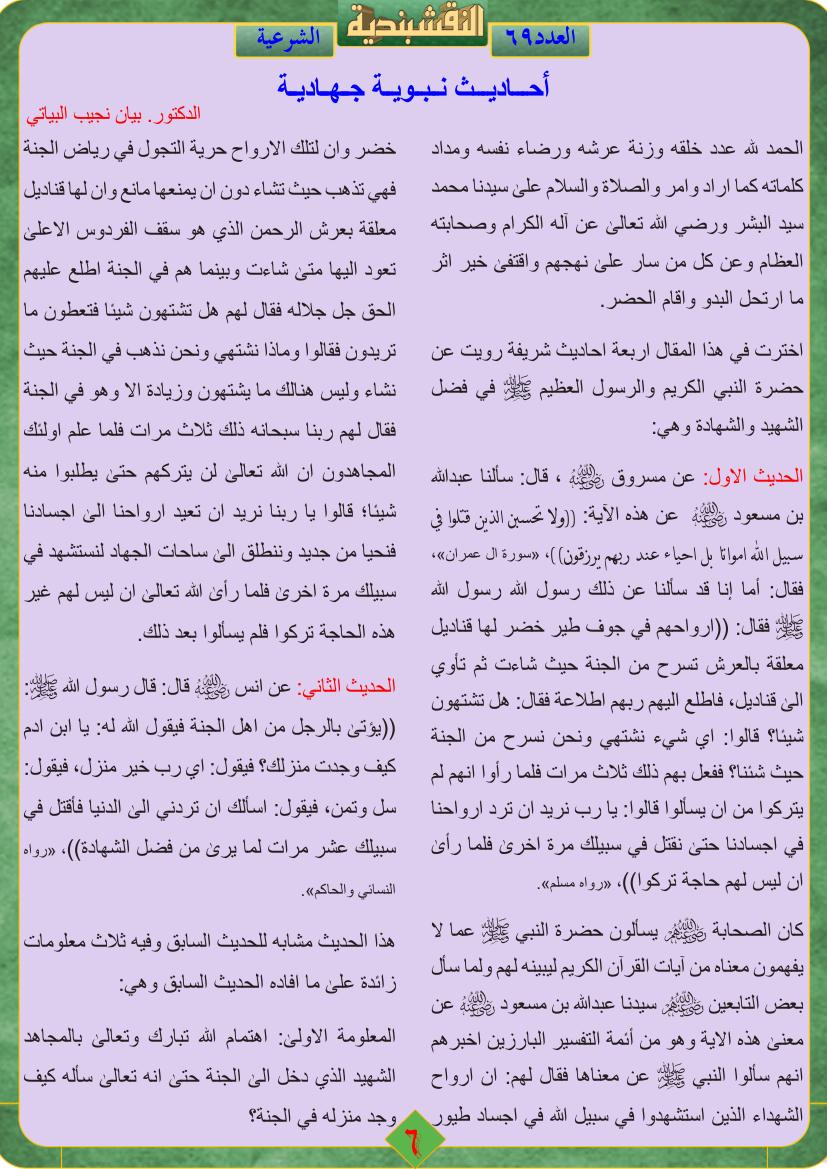 العدد ٦٩
النقشبندية
الشرعية
أحـاديـث نـبـويـة جـهـاديـة
الدكتور. بيان نجيب البياتي
الحمد لله عدد خلقه وزنة عرشه ورضاء نفسه ومداد
كلماته كما اراد وامر والصلاة والسلام علىٰ سيدنا محمد
سيد البشر ورضي الله تعالىٰ عن آله الكرام وصحابته
العظام وعن كل من سار علىٰ نهجهم واقتفىٰ خير اثر
ما ارتحل البدو واقام الحضر.
اخترت في هذا المقال اربعة احاديث شريفة رويت عن
حضرة النبي الكريم والرسول العظيم ﷺ في فضل
الشهيد والشهادة وهي:
الحديث الاول: عن مسروق رضي الله عنه ، قال: سألنا عبدالله
بن مسعود رضي الله عنه عن هذه الآية: ((ولا تحسبن الذين قتلوا في
سبيل الله امواتا بل احياء عند ربهم يرزقون))، «سورة ال عمران»،
فقال: أما إنا قد سألنا عن ذلك رسول الله رسول الله
ﷺ فقال: ((ارواحهم في جوف طير خضر لها قناديل
معلقة بالعرش تسرح من الجنة حيث شاءت ثم تأوي
الىٰ قناديل، فاطلع اليهم ربهم اطلاعة فقال: هل تشتهون
شيئا؟ قالوا: اي شيء نشتهي ونحن نسرح من الجنة
حيث شئنا؟ ففعل بهم ذلك ثلاث مرات فلما رأوا انهم لم
يتركوا من ان يسألوا قالوا: يا رب نريد ان ترد ارواحنا
في اجسادنا حتىٰ نقتل في سبيلك مرة اخرىٰ فلما رأىٰ
ان ليس لهم حاجة تركوا))، «رواه مسلم».
كان الصحابة رضي الله عنهم يسألون حضرة النبي ﷺ عما لا
يفهمون معناه من آيات القرآن الكريم ليبينه لهم ولما سأل
بعض التابعين رضي الله عنهم سيدنا عبدالله بن مسعود رضي الله عنه عن
معنىٰ هذه الاية وهو من أئمة التفسير البارزين اخبرهم
انهم سألوا النبي ﷺ عن معناها فقال لهم: ان ارواح
الشهداء الذين استشهدوا في سبيل الله في اجساد طيور
خضر وان لتلك الارواح حرية التجول في رياض الجنة
فهي تذهب حيث تشاء دون ان يمنعها مانع وان لها قناديل
معلقة بعرش الرحمن الذي هو سقف الفردوس الاعلىٰ
تعود اليها متىٰ شاءت وبينما هم في الجنة اطلع عليهم
الحق جل جلاله فقال لهم هل تشتهون شيئا فتعطون ما
تريدون فقالوا وماذا نشتهي ونحن نذهب في الجنة حيث
نشاء وليس هنالك ما يشتهون وزيادة الا وهو في الجنة
فقال لهم ربنا سبحانه ذلك ثلاث مرات فلما علم اولئك
المجاهدون ان الله تعالىٰ لن يتركهم حتىٰ يطلبوا منه
شيئا؛ قالوا يا ربنا نريد ان تعيد ارواحنا الىٰ اجسادنا
فنحيا من جديد وننطلق الىٰ ساحات الجهاد لنستشهد في
سبيلك مرة اخرىٰ فلما رأىٰ الله تعالىٰ ان ليس لهم غير
هذه الحاجة تركوا فلم يسألوا بعد ذلك.
الحديث الثاني: عن انس رضي الله عنه قال: قال رسول الله ﷺ:
((يؤتىٰ بالرجل من اهل الجنة فيقول الله له: يا ابن ادم
كيف وجدت منزلك؟ فيقول: اي رب خير منزل، فيقول:
سل وتمن، فيقول: اسألك ان تردني الىٰ الدنيا فأقتل في
سبيلك عشر مرات لما يرىٰ من فضل الشهادة))، «رواه
النسائي والحاكم».
هذا الحديث مشابه للحديث السابق وفيه ثلاث معلومات
زائدة علىٰ ما افاده الحديث السابق وهي:
المعلومة الاولىٰ: اهتمام الله تبارك وتعالىٰ بالمجاهد
الشهيد الذي دخل الىٰ الجنة حتىٰ انه تعالىٰ سأله كيف
وجد منزله في الجنة؟
٦